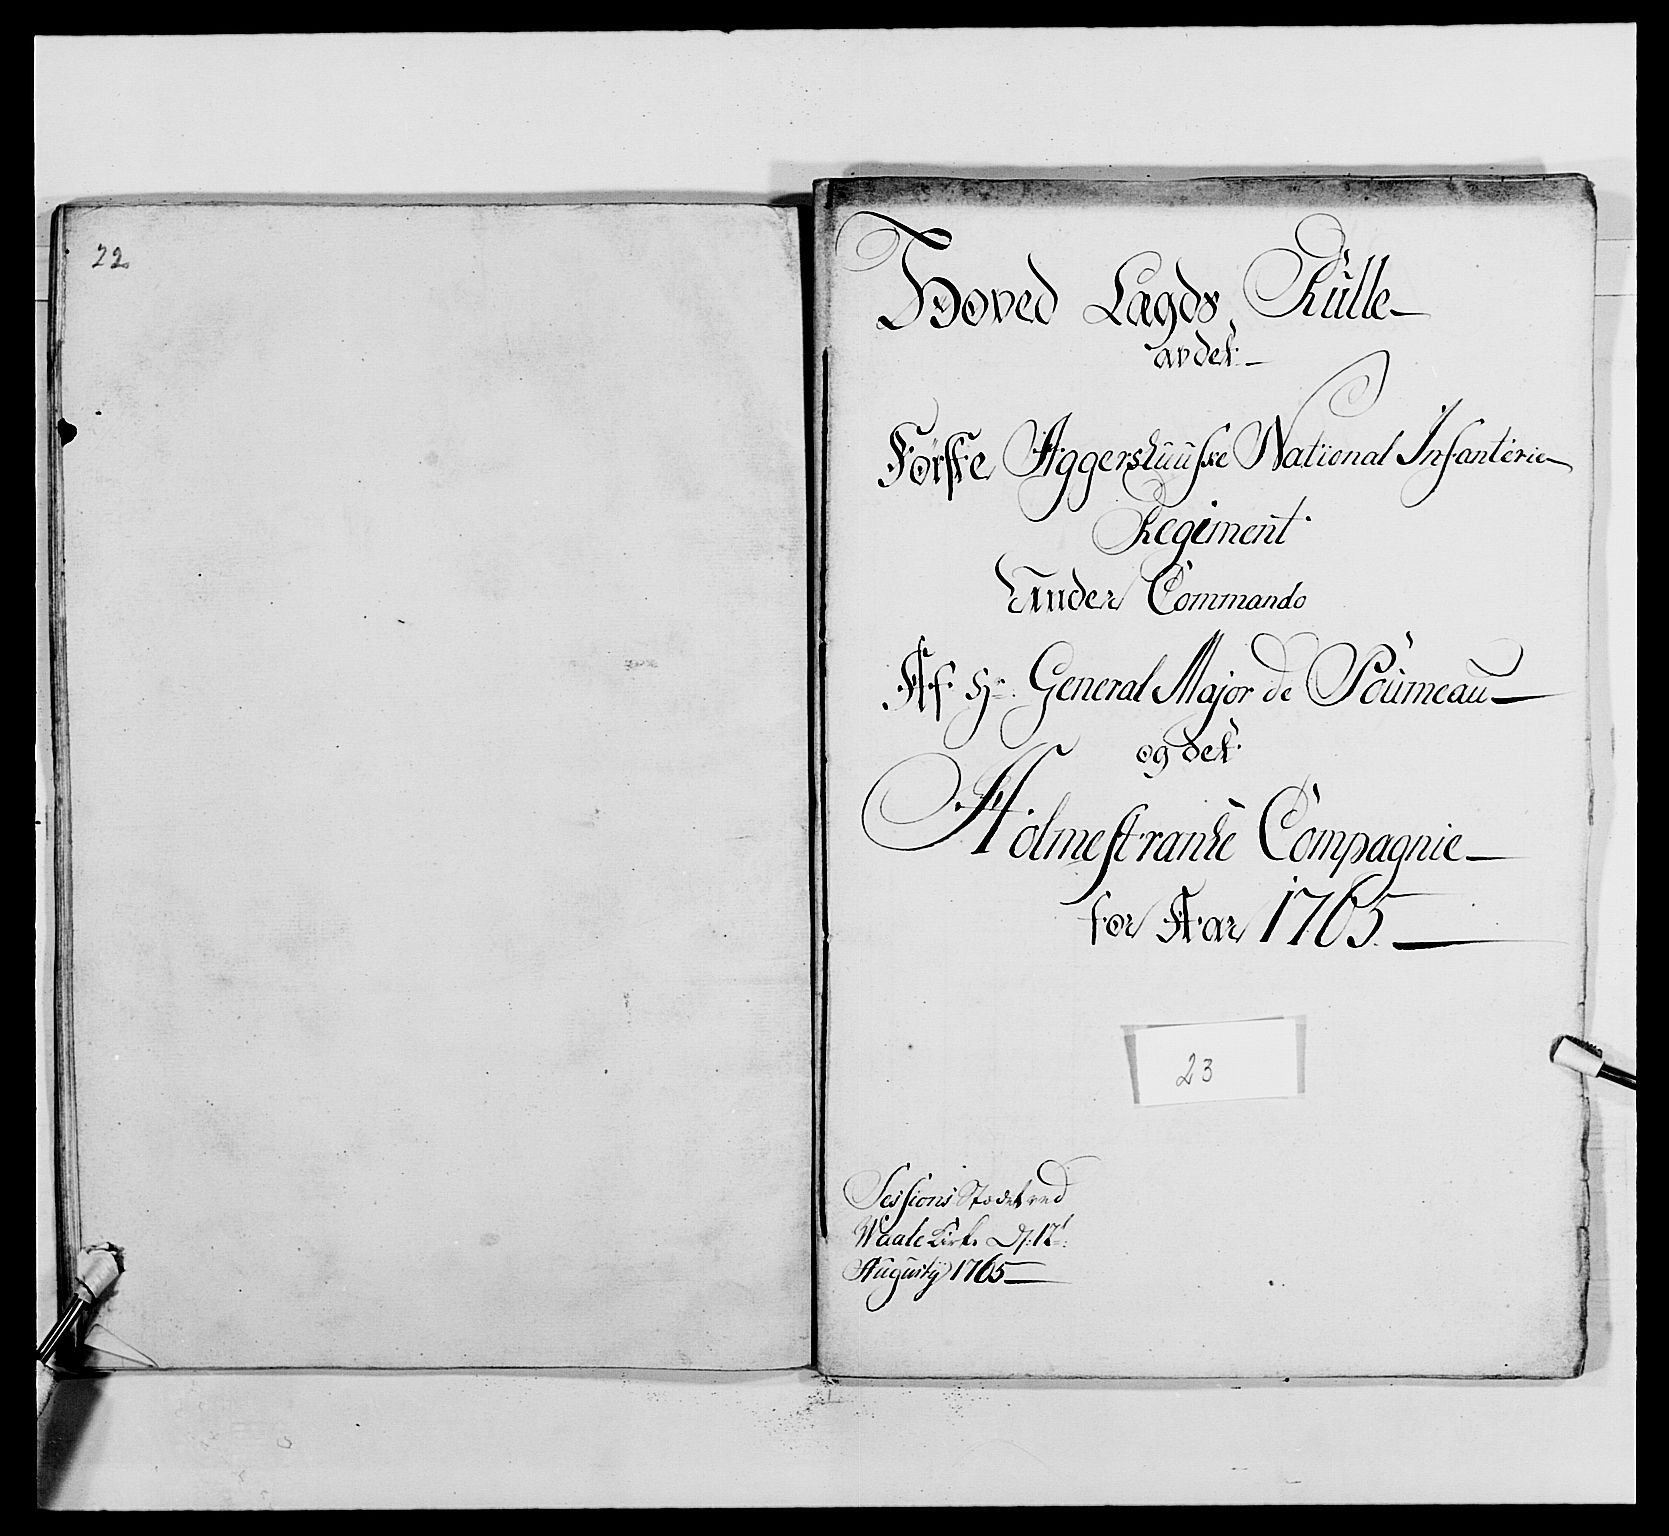 22.
Hoved Lægds Rulle
av det
Förste Aggershuuske National Infanterie
Regiment
Under Commando
Af Hr. General Major de Poumeau
og det
Holmestranke Compagnie
for Aar 1765.
23
Sessions Stædet ved
Waale Kirke D: 12t
Augustij 1765